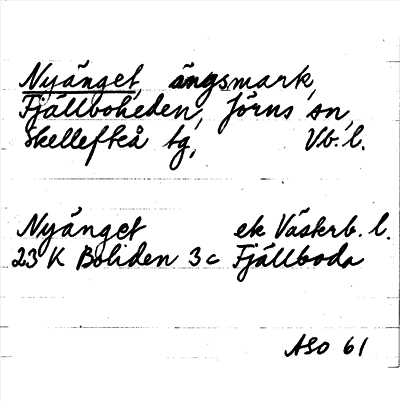 Nyänget, ängsmark,
Fjällboheden, Jörns sn,
Skellefteå tg, Vb. l.
Nyänget ek Västerb. l.
23 K Boliden 3 c Fjällboda
ASO 61